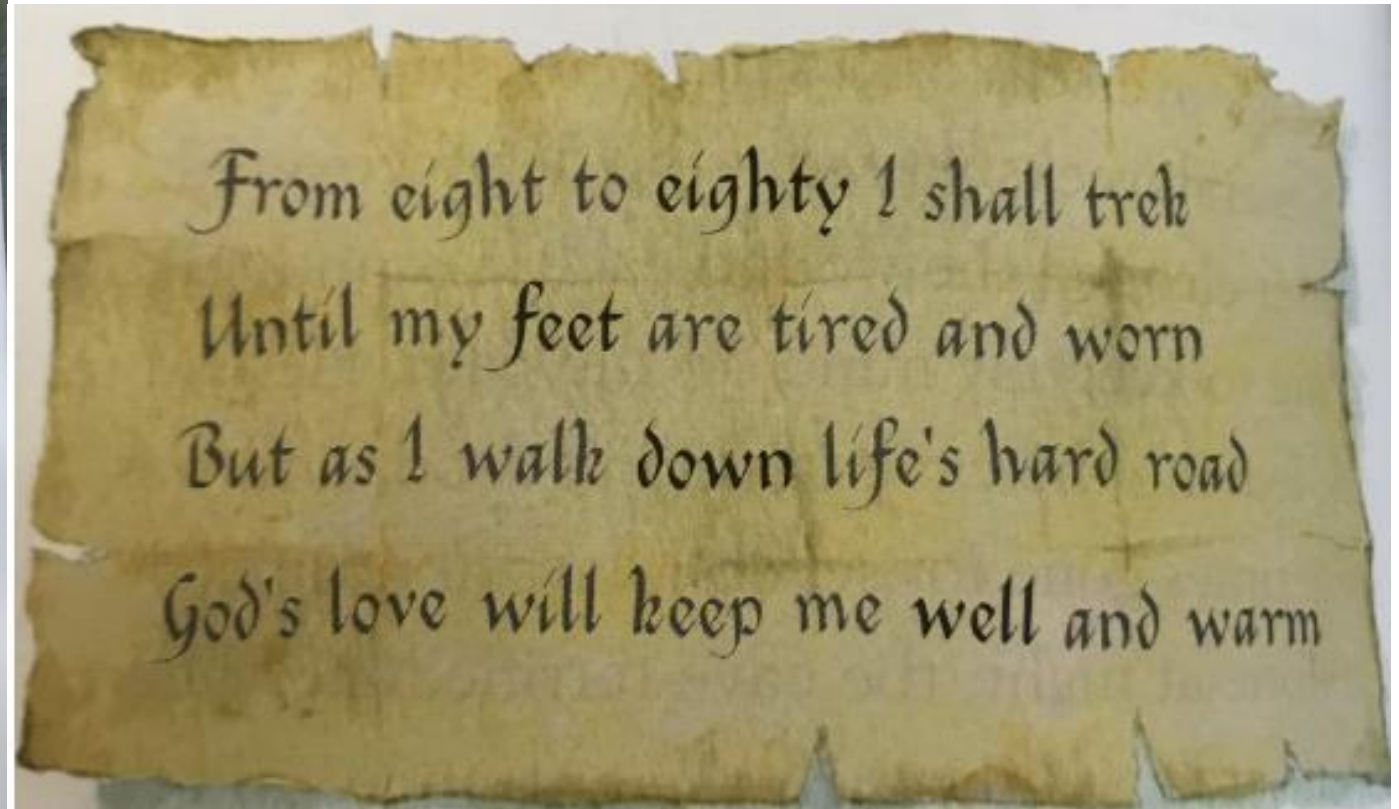 From eight to eighty I shall trek
Until my feet are tired and worn
But as I walk down life's hard road
God's love will keep me well and warm